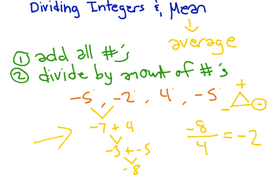 Dividing Integers & Mean
average
① add all #'s
② divide by amount of #'s
-5, -2, 4, -5
-7 + 4
-3 + -5
-8
-8/4 = -2
- + -